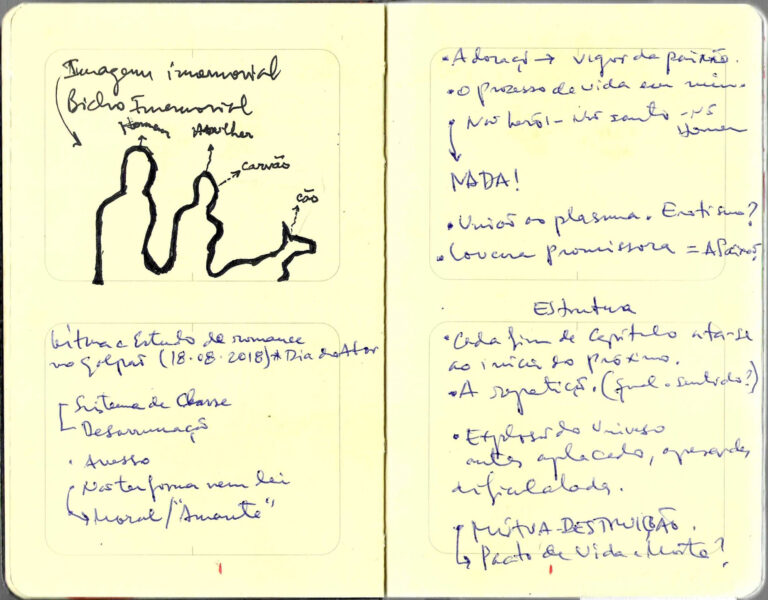 Imagem imemorial
Bicho Imemorial
Homem
Mulher
carvão
cão
Leitura e Estudo do romance
no galpão (18.08.2018) * Dia do Ator
Sistema de Classe
Desarrumação
• Avesso
Não ter forma nem lei
Moral / "Amante"
• Adoração → vigor da paixão.
• O processo de vida em mim.
Não herói - Não santo - Nó
Homem
NADA!
• União ao plasma. Erotismo?
• Loucura promissora = A Paixão?
Estrutura
• Cada fim de capítulo ata-se
ao início do próximo.
• A repetição. (Qual o sentido?)
• Explosão do Universo
antes aplacado,
MÚTUA-DESTRUIÇÃO.
Pacto de Vida e Morte?